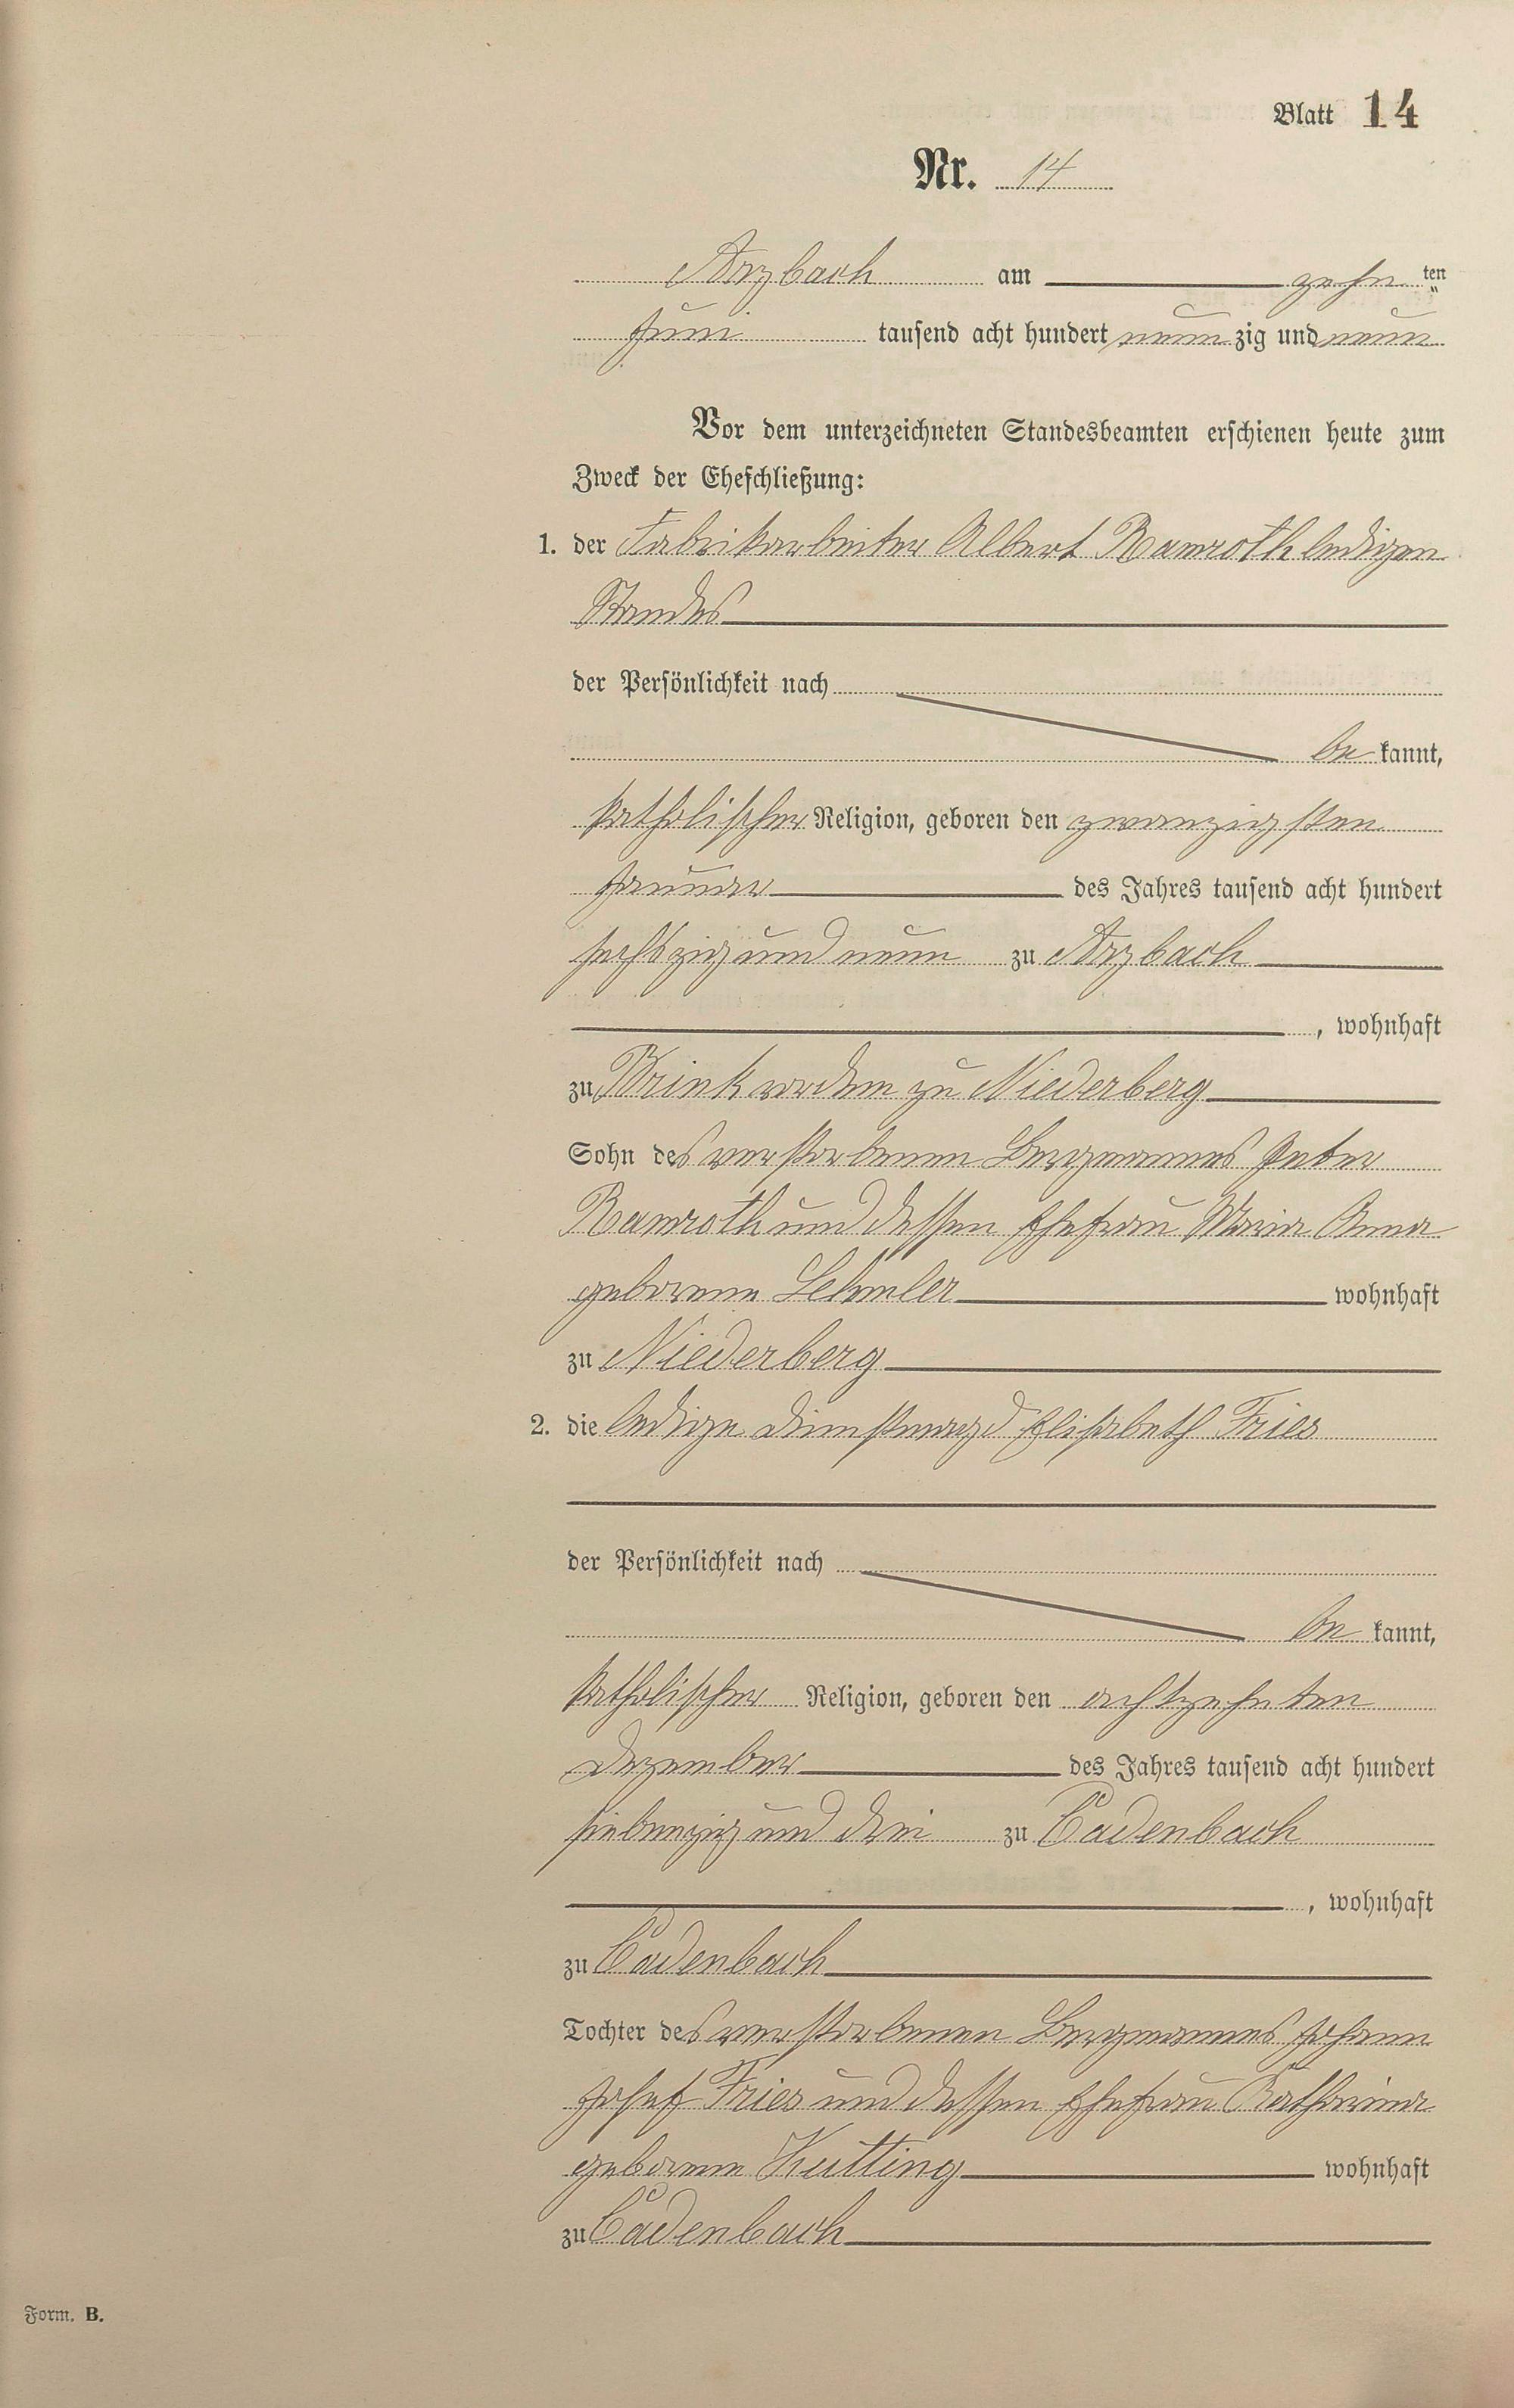 Blatt 14
Nr. 14
Arzbach am zehn ten
Juni tausend acht hundert neun zig und neun
Vor dem unterzeichneten Standesbeamten erschienen heute zum
Zweck der Eheschließung:
1. der Fabrikarbeiter Albert Ramroth ledigen
Standes
der Persönlichkeit nach
be kannt,
katholischer Religion, geboren den zwanzigsten
Januar des Jahres tausend acht hundert
sechszig und neun zu Arzbach
, wohnhaft
zu Brink vordem zu Niederberg
Sohn des verstorbenen Bergmannes Peter
Ramroth und dessen Ehefrau Maria Anna
geborene Lehmler wohnhaft
zu Niederberg
2. die ledige Dienstmagd Elisabeth Fries
der Persönlichkeit nach
be kannt,
katholischer Religion, geboren den achtzehnten
Dezember des Jahres tausend acht hundert
siebenzig und drei zu Cadenbach
, wohnhaft
zu Cadenbach
Tochter des verstorbenen Bergmannes Johann
Josef Fries und dessen Ehefrau Katharina
geborene Kutting wohnhaft
zu Cadenbach
Form. B.